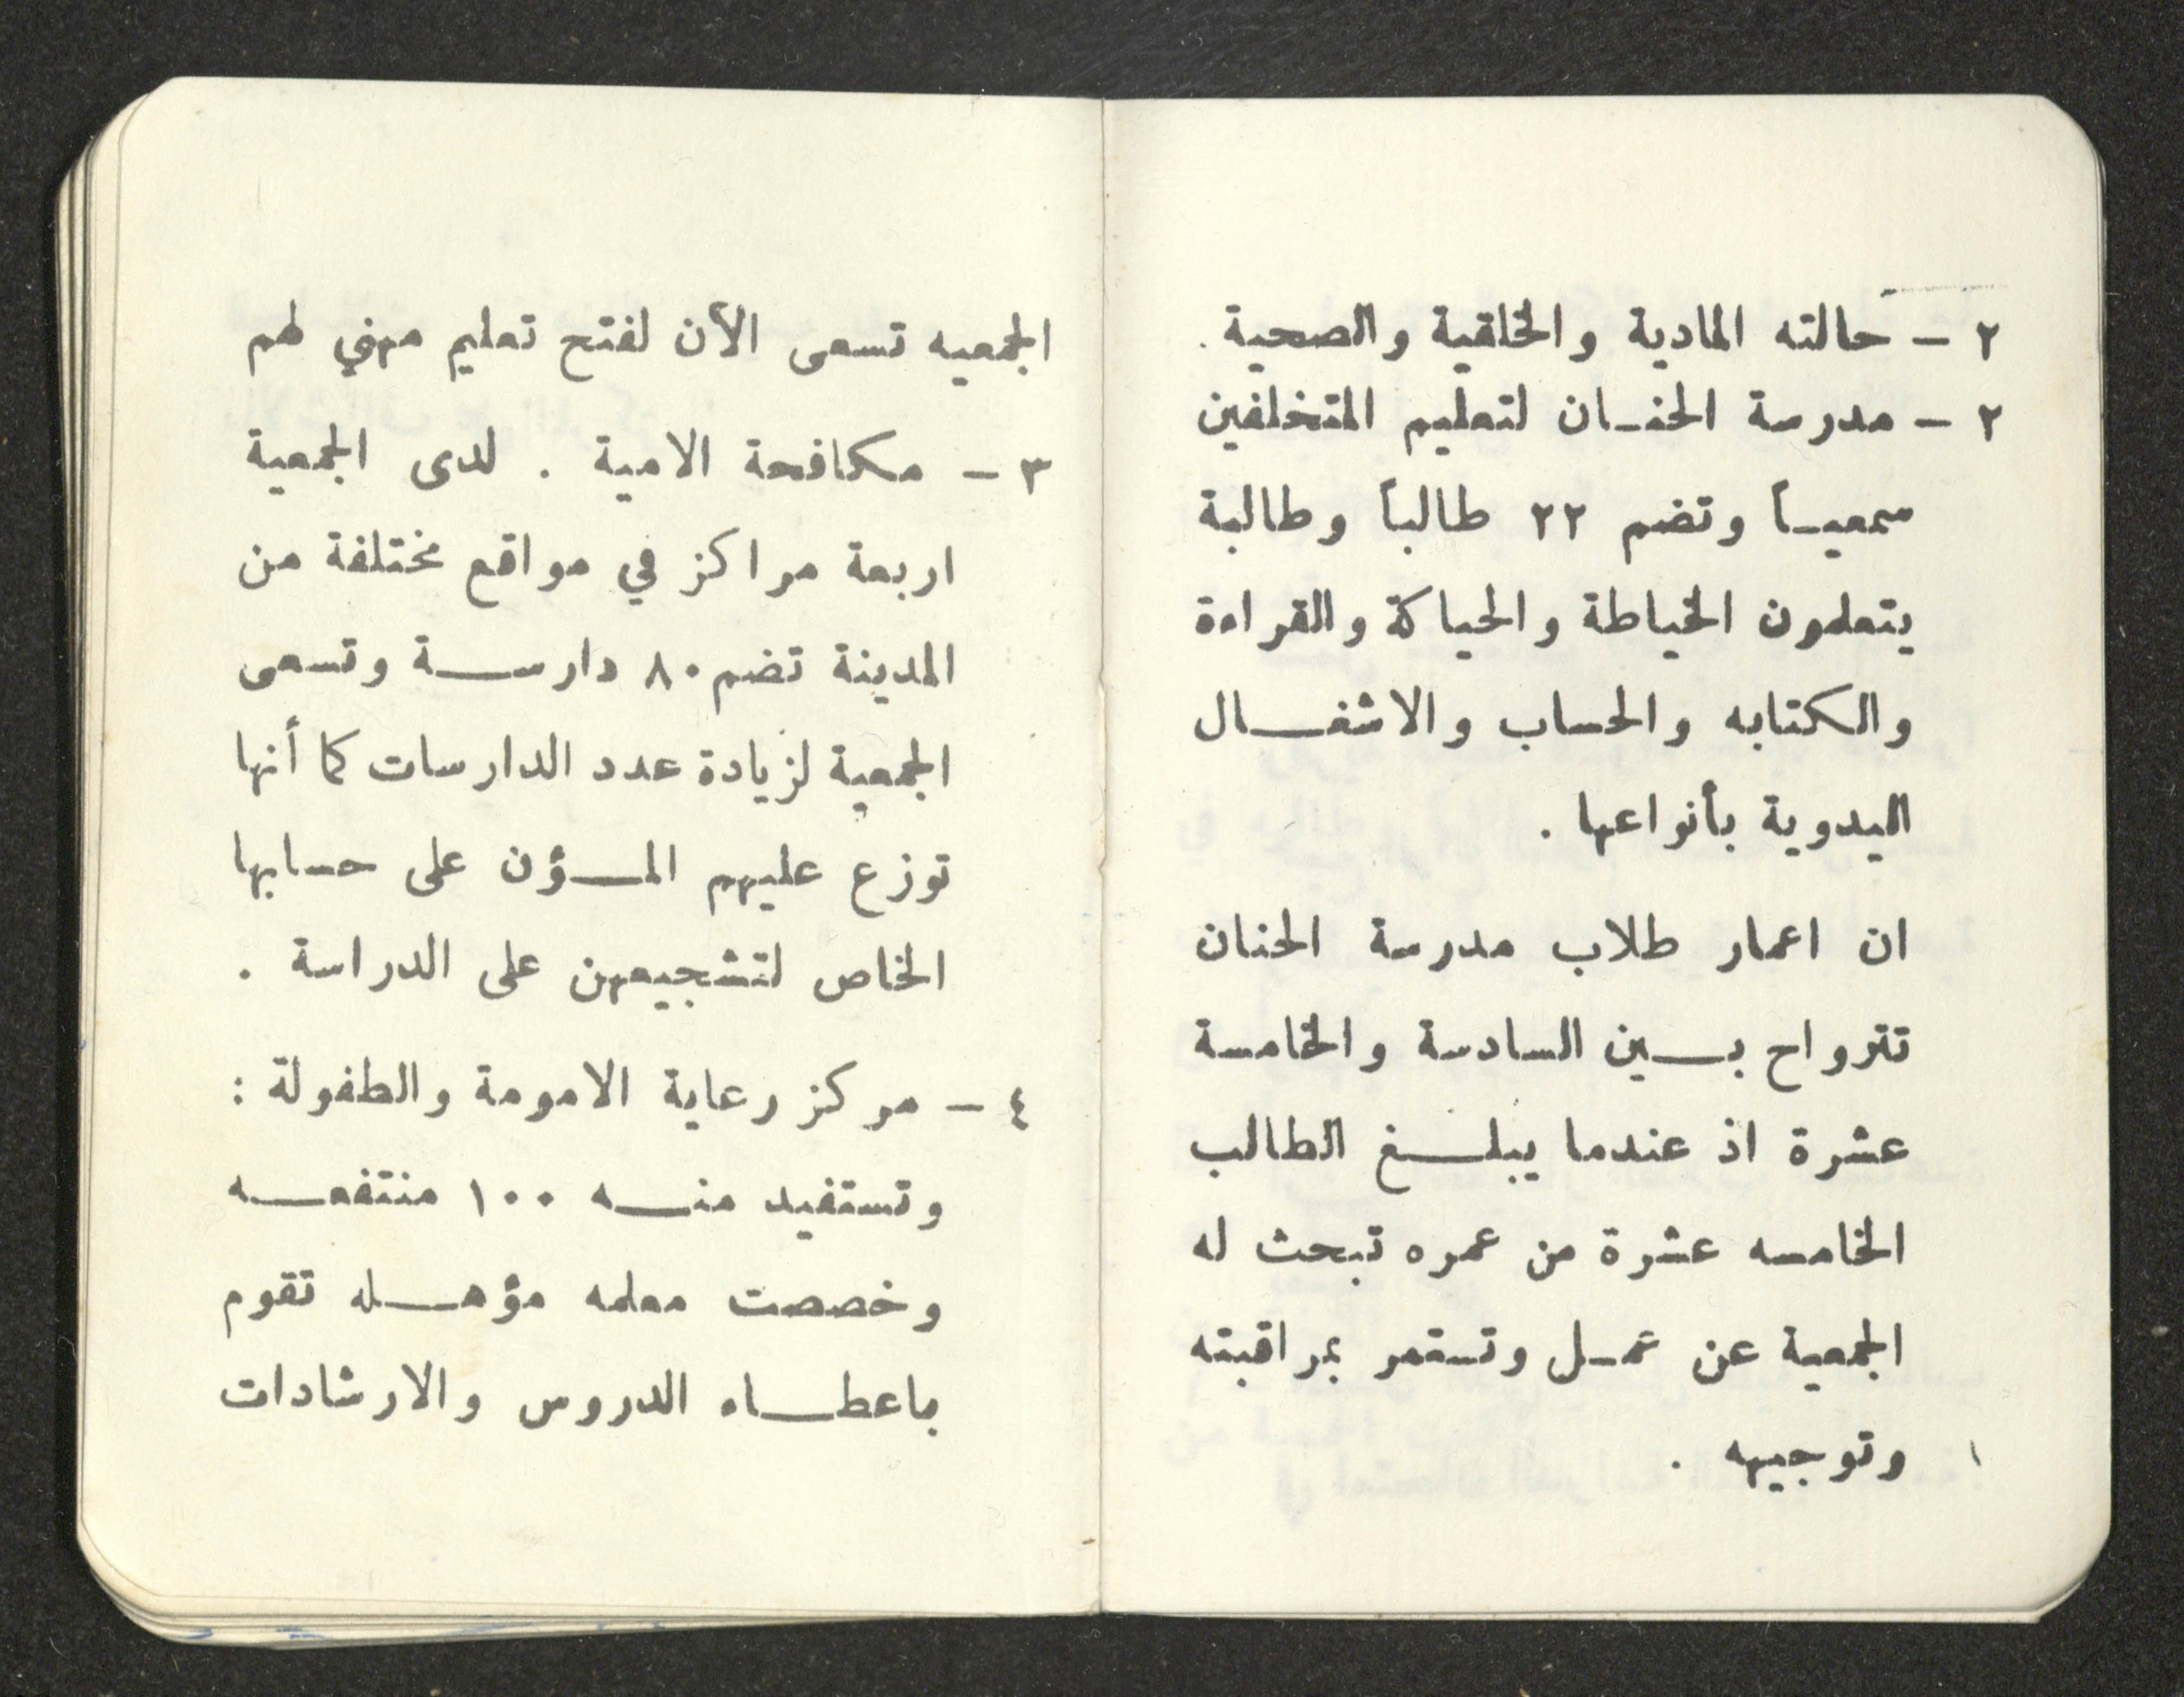 ٢ - حالته المادية والخلقية والصحية .
٢ - مدرسة الحنان لتعليم المتخلفين
سمعياً وتضم ٢٢ طالباً وطالبة
يتعلمون الخياطة والحياكة والقراءة
والكتابه والحساب والاشغال
اليدوية بأنواعها .
ان اعمار طلاب مدرسة الحنان
تترواح بين السادسة والخامسة
عشرة اذ عندما يبلغ الطالب
الخامسه عشرة من عمره تبحث له
الجمعية عن عمل وتستمر بمراقبته
وتوجيهه .
الجمعيه تسعى الآن لفتح تعليم مهني لهم
٣ - مكافحة الامية . لدى الجمعية
اربعة مراكز في مواقع مختلفة من
المدينة تضم ٨٠ دارسة وتسعى
الجمعية لزيادة عدد الدارسات كما أنها
توزع عليهم المؤن على حسابها
الخاص لتشجيعهن على الدراسة .
٤ - مركز رعاية الامومة والطفولة :
وتستفيد منه ١٠٠ منتفعه
وخصصت معلمه مؤهله تقوم
باعطاء الدروس والارشادات